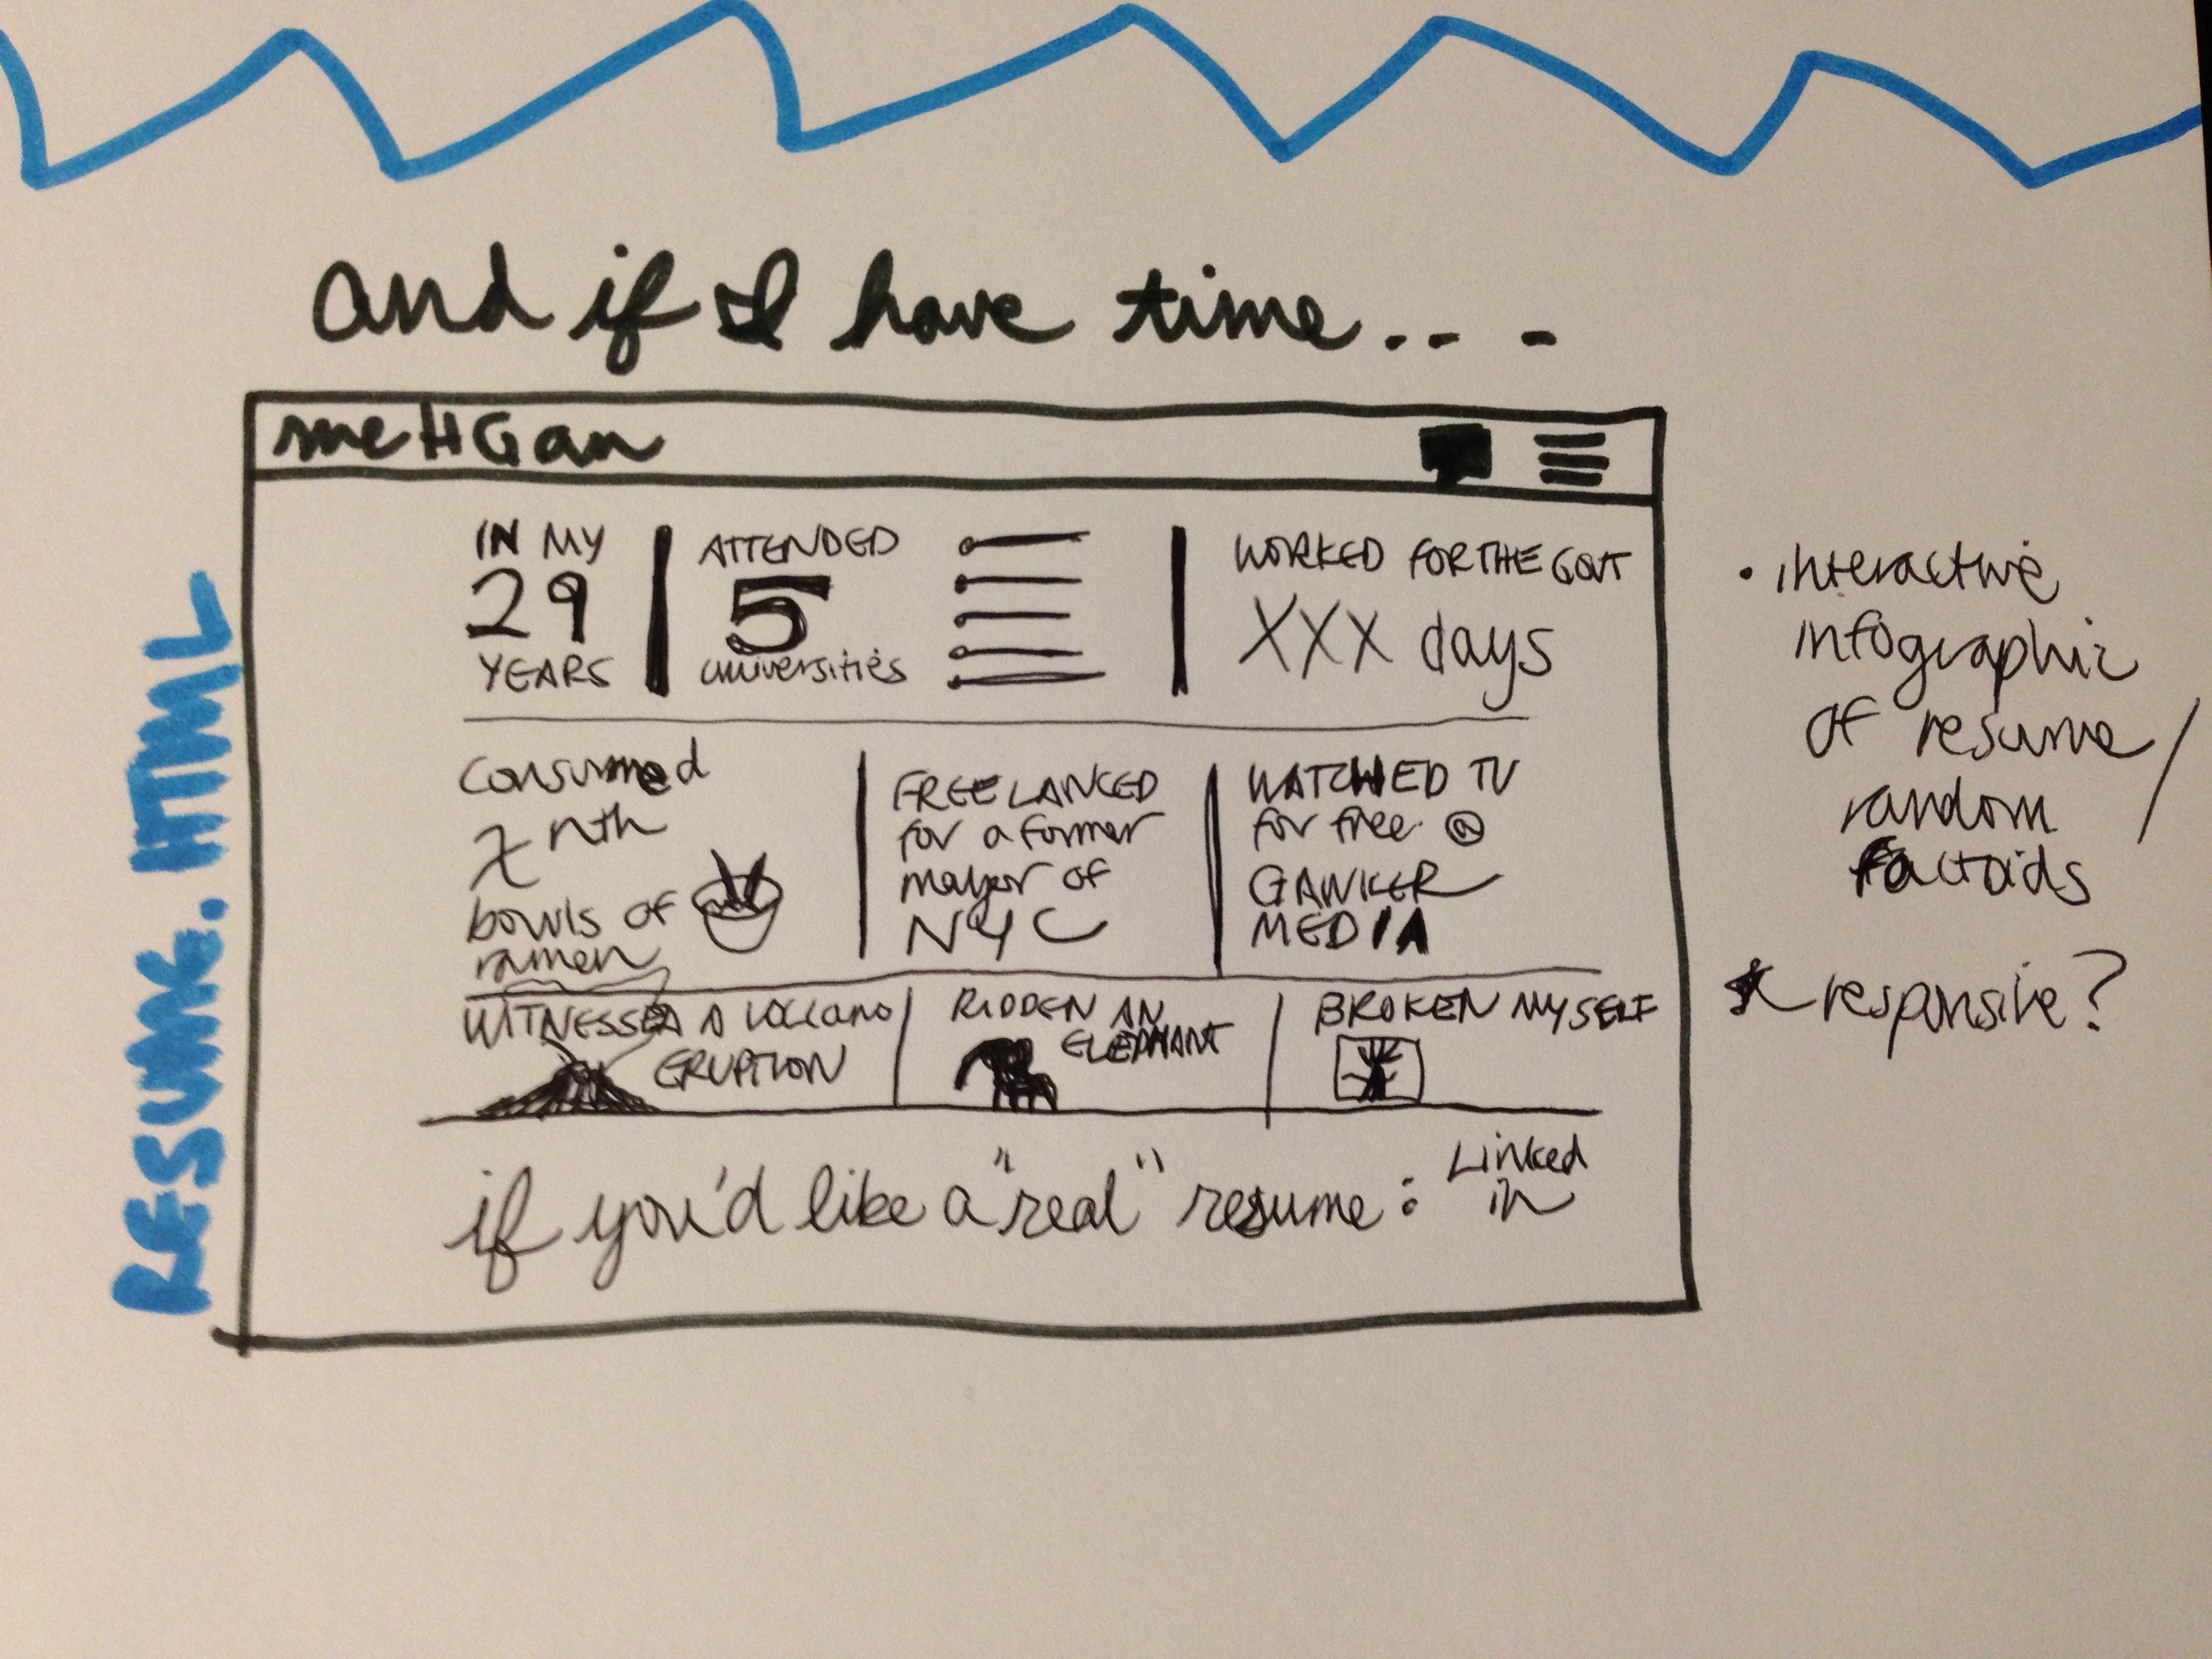 and if I have time.. -
RESUME. HTML
meHGan
IN MY
29
YEARS
ATTENDED
5
universities
WORKED FOR THE GOVT
XXX days
Consumed
nth
bowls of
ramen
FREELANCED
for a former
mayor of
NYC
WATCHED TV
for free @
GAWKER
MEDIA
WITNESSED A VOLCANO
ERUPTION
RIDDEN AN
ELEPHANT
BROKEN MYSELF
if you'd like a "real" resume: Linked
in
• interactive
infographic
of resume /
random
factoids
* responsive?